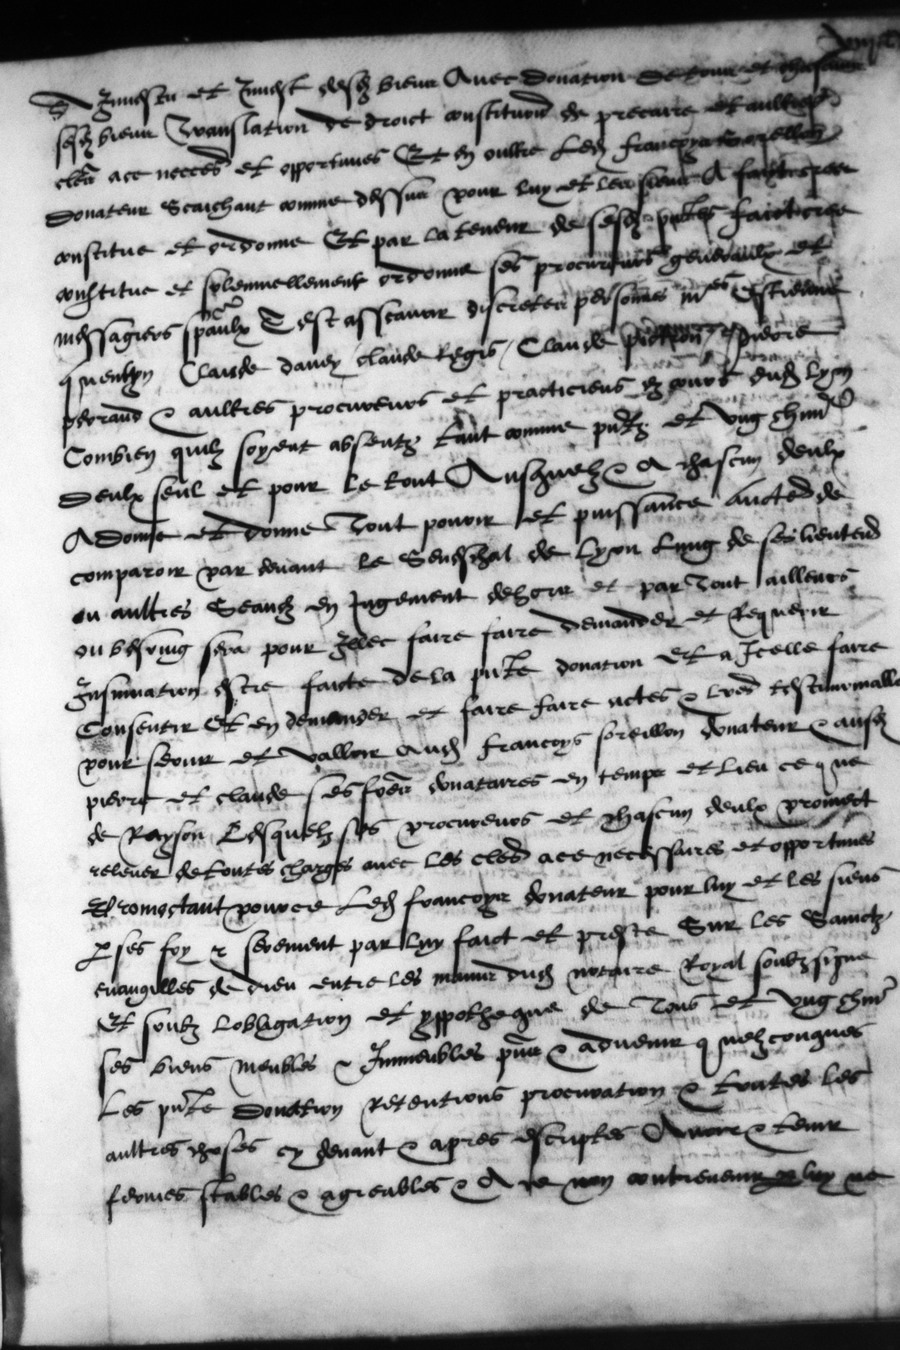 et Investu desd biens Avec donation de tout et chascun
sesd biens Translation de droict constitution de precaire et aultres
clES a ce necces et opportunes Et en oultre Led francoys soreillon
donateur Scaichant comme dessus pour luy et les siens A faict cree
constitue et ordonne Et par la teneur de sesd pntes faict cree
constitue et solennellement ordonne ses procureurs generaulx et
messagiers speaulx C'est asscavoir discretes persones mes Estienne
quentyn Claude davey claude Regis Claude pierre
perraud & aultres procureurs et practiciens es cours dud Lyon
Combien quilz soyent absentz tant comme pntz et Ung chun
deulx seul et pour le tout Ausquelz & A chascun deulx
A donne et donne Tout pouvoir et puissance Auctes de
comparoir par devant le Seneschal de Lyon Lung de ses lieuten
ou aultres Seans en Jugement dehors et par Tout ailleurs
ou besoing sera pour Illec faire faire demander et Requerir
Insinuation estre faicte de la pnte donation Et a Icelle faire
Consentir Et en demander et faire faire actes & lres testimonialles
pour servir et valloir aud francoys soreillon donateur & ausd
pierre et claude ses freres donataires en temps et lieu ce que
de Rayson Lesquelz ses procureurs et chascun deulx promect
relever de toutes charges avec les cles a ce necessaires et opportunes
Promectant pource Led francoys donateur pour luy et les siens
P ses foy & serement par luy faict et preste Sur les Sainctz
evangilles de dieu entre les mains dud notaire Royal soubzsigne
Et soubz lobligation et yppotheque de Tous et Ung chun
ses biens meubles & Immeubles pns & advenir quelzconques
Les pnte donation Retentions procuration & toutes les
aultres choses cy devant & apres escriptes Avoir & tenir
fermes stables & agreables & A ce non contrevenir luy ne